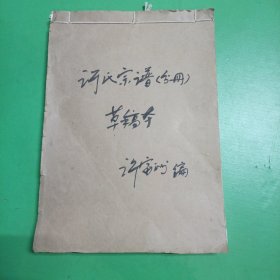 许氏宗谱(分册)
草稿本
许家 编